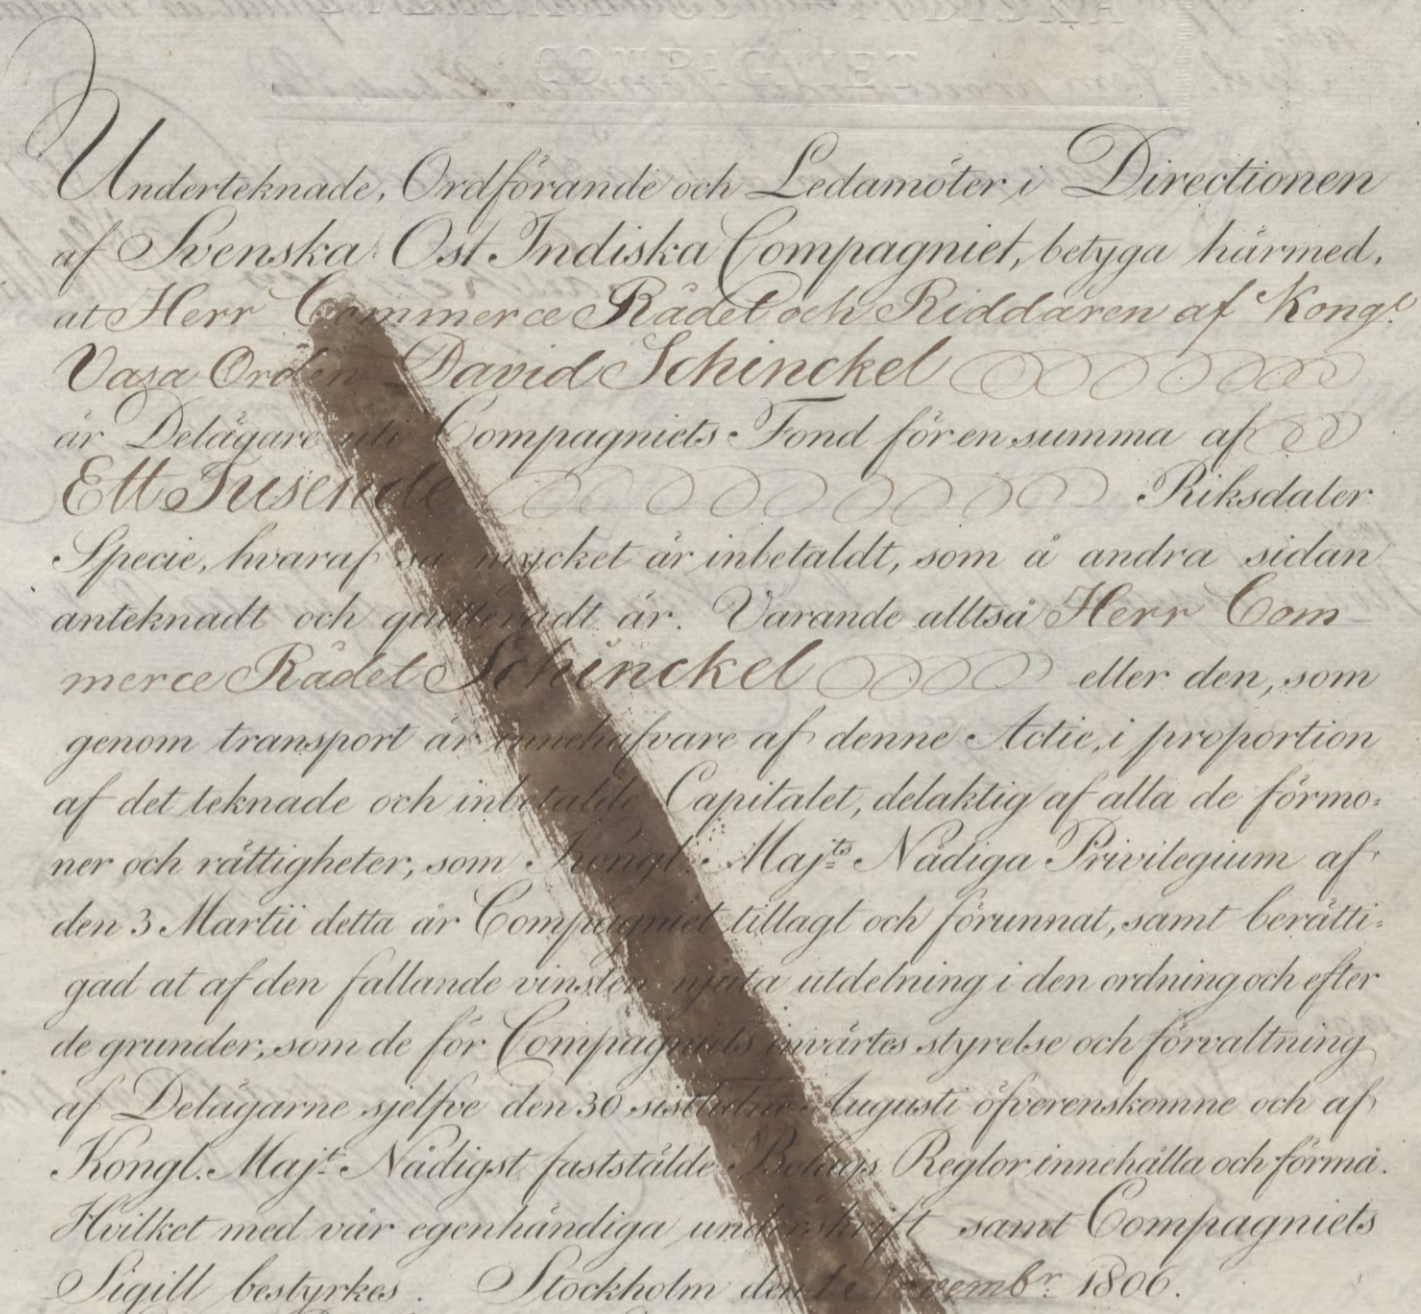 SVENSKA OST INDISKA
COMPAGNIET
Underteknade, Ordförande och Ledamöter i Directionen
af Svenska Ost Indiska Compagniet, betyga härmed,
at Herr Commerce Rådet och Riddaren af Kongl.
Vasa Orden David Schinckel
är Delägare uti Compagniets Fond för en summa af
Ett Tusende Riksdaler
Specie, hvaraf så mycket är inbetaldt, som å andra sidan
anteknadt och quitteradt är. Varande alltså Herr Com
merce Rådet Schinckel eller den, som
genom transport är innehafvare af denne Actie, i proportion
af det teknade och inbetalde Capitalet, delaktig af alla de förmo=
ner och rättigheter, som Kongl. Maj:ts Nådiga Privilegium af
den 3 Martii detta år Compagniet tillagt och förunnat, samt berätti=
gad at af den fallande vinsten njuta utdelning i den ordning och efter
de grunder, som de för Compagniets invärtes styrelse och förvaltning
af Delägarne sjelfve den 30 sistledne Augusti öfverenskomne och af
Kongl. Maj:t Nådigst faststälde Bolags Reglor innehålla och förmå.
Hvilket med vår egenhändiga underskrift samt Compagniets
Sigill bestyrkes. Stockholm den 1 Novembr. 1806.